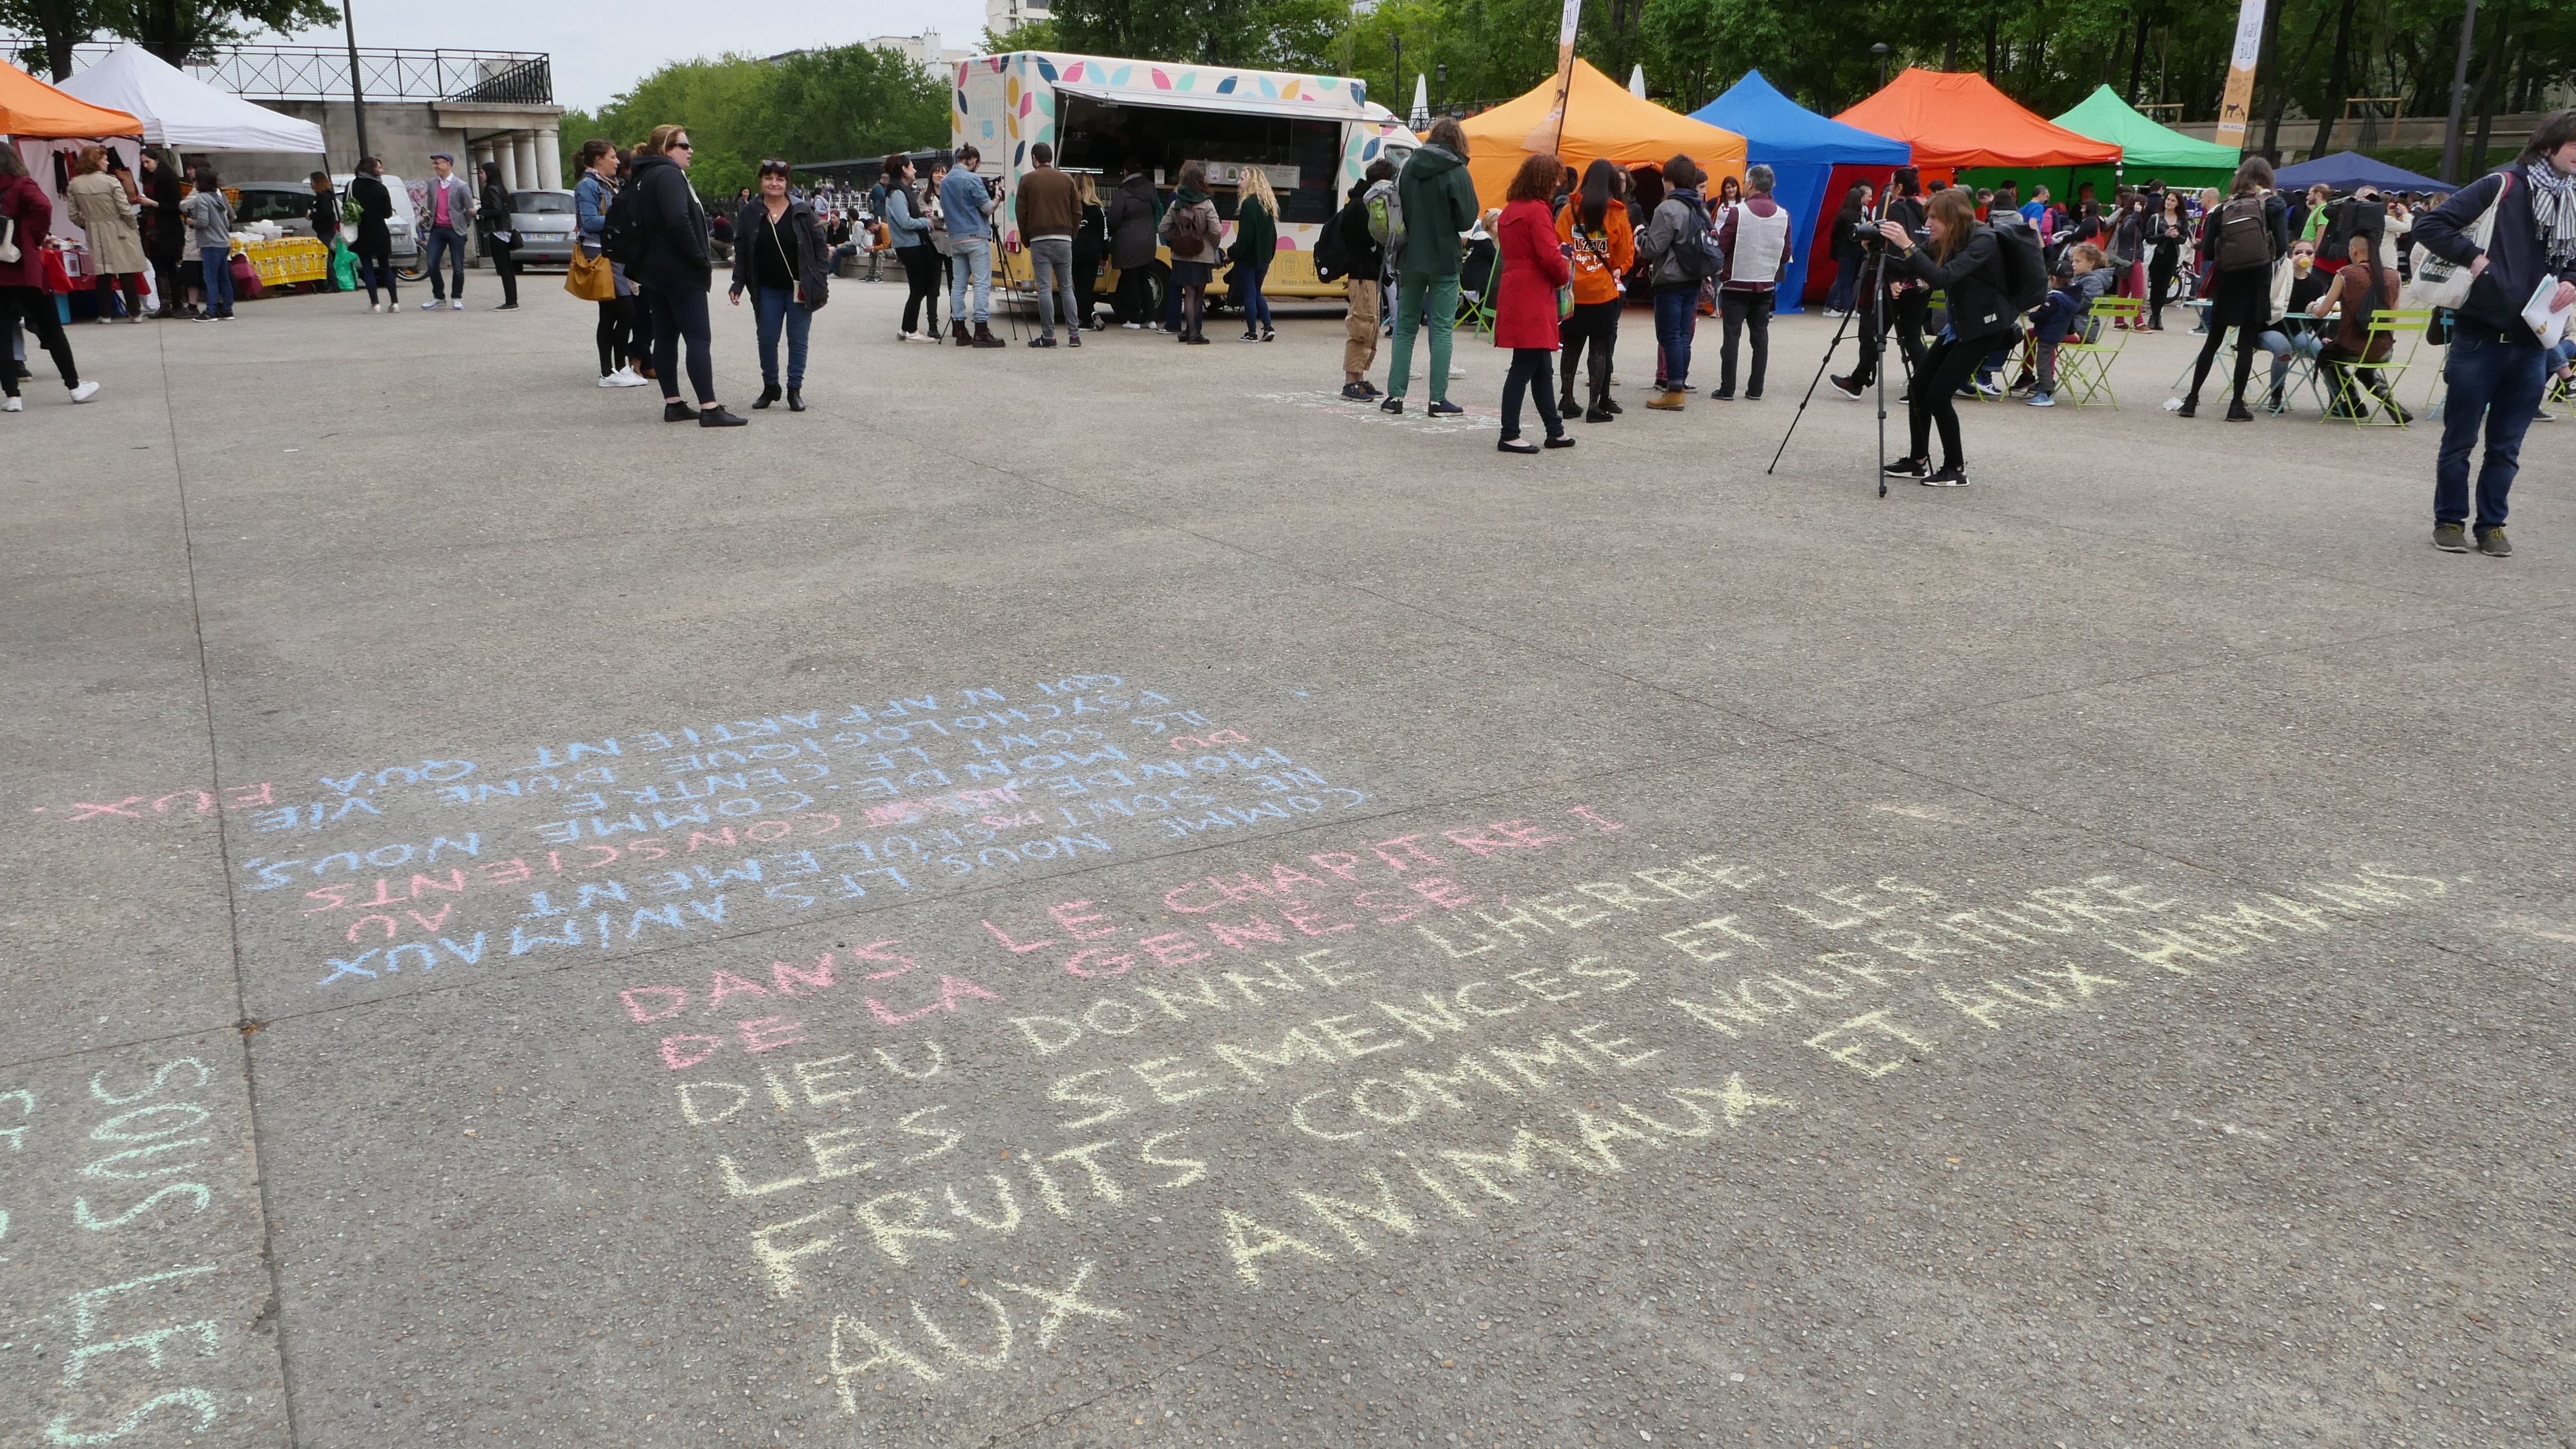 DANS LE CHAPITRE I
DE LA GENESE,
DIEU DONNE L'HERBE,
LES SEMENCES ET LES
FRUITS COMME NOURRITURE
AUX ANIMAUX ET AUX HUMAINS.
COMME NOUS, LES ANIMAUX
NE SONT PAS SEULEMENT AU
MONDE CONSCIENTS
DU MONDE. COMME NOUS,
ILS SONT LE CENTRE D'UNE VIE
PSYCHOLOGIQUE
QUI N'APPARTIENT QU'À EUX.
SOUS LES